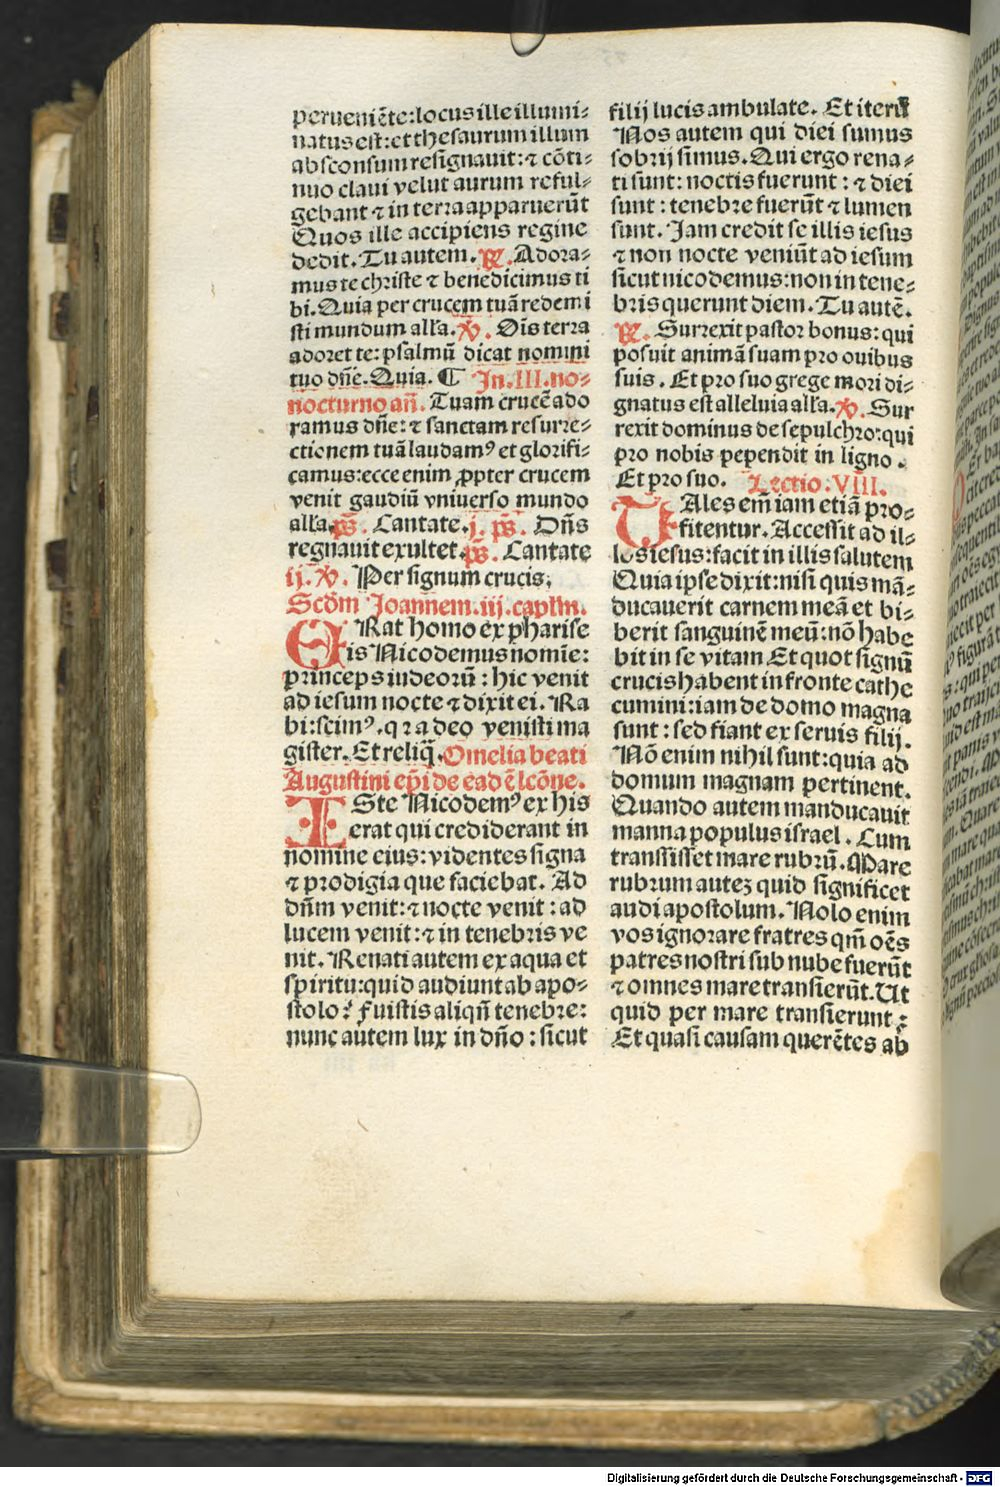 perueniēte:locus ille illumi⸗
natus est:et thesaurum illum
absconsum resignauit:⁊ cōti⸗
nuo claui velut aurum reful⸗
gebant ⁊ in terra apparuerūt
Quos ille accipiens regine
dedit. Tu autem. ℟. Adora⸗
mus te christe ⁊ benedicimus ti
bi. Quia per crucem tuā redemi
sti mundum alľa. ℣. Oīs terra
adoret te: psalmū dicat nomini
tuo dn̄e. Quia. ¶ In. III. no⸗
nocturno an̄. Tuam crucē ado
ramus dn̄e: ⁊ sanctam resurre⸗
ctionem tuā laudamꝰ et glorifi⸗
camus: ecce enim ꝓpter crucem
venit gaudiū vniuerso mundo
alľa. p̄s. Cantate. j. p̄s. Dn̄s
regnauit exultet. p̄s. Cantate
ij. ℣. Per signum crucis,
Scḋm Joannem. iij. capľm.
ERat homo ex pharise
is Nicodemus nomīe:
princeps iudeorū: hic venit
ad iesum nocte ⁊ dixit ei. Ra
bi: scimꝰ. q2 a deo venisti ma
gister. Et reliq̄. Omelia beati
Augustini ep̄i de eadē lcōne.
ISte Nicodemꝰ ex his
erat qui crediderant in
nomine eius: videntes signa
⁊ prodigia que faciebat. Ad
dn̄m venit: ⁊ nocte venit: ad
lucem venit: ⁊ in tenebris ve
nit. Renati autem ex aqua et
spiritu: quid audiunt ab apo⸗
stolo? Fuistis aliqn̄ tenebre:
nunc autem lux in dn̄o: sicut
filij lucis ambulate. Et iterū
Nos autem qui diei sumus
sobrij simus. Qui ergo rena⸗
ti sunt: noctis fuerunt: ⁊ diei
sunt: tenebre fuerūt ⁊ lumen
sunt. Jam credit se illis iesus
⁊ non nocte veniūt ad iesum
sicut nicodemus: non in tene⸗
bris querunt diem. Tu autē.
℟. Surrexit pastor bonus: qui
posuit animā suam pro ouibus
suis. Et pro suo grege mori di⸗
gnatus est alleluia alľa. ℣. Sur
rexit dominus de sepulchro: qui
pro nobis pependit in ligno.
Et pro suo. Lectio: VIII.
TAles em̄ iam etiā pro⸗
fitentur. Accessit ad il⸗
los iesus: facit in illis salutem
Quia ipse dixit: nisi quis mā⸗
ducauerit carnem meā et bi⸗
berit sanguinē meū: nō habe
bit in se vitam Et quot signū
crucis habent in fronte cathe
cumini: iam de domo magna
sunt: sed fiant ex seruis filij.
Nō enim nihil sunt: quia ad
domum magnam pertinent.
Quando autem manducauit
manna populus israel. Cum
transisset mare rubrū. Mare
rubrum autez quid significet
audi apostolum. Nolo enim
vos ignorare fratres qm̄ oēs
patres nostri sub nube fuerūt
⁊ omnes mare transierūt. Ut
quid per mare transierunt:
Et quasi causam querētes ab
Digitalisierung gefördert durch die Deutsche Forschungsgemeinschaft - DFG